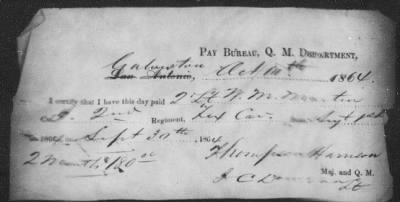 PAY BUREAU, Q. M. DEPARTMENT,
Galveston
San Antonio, Oct 10th 1864
I certify that I have this day paid 2 Lt W. M. Martin
2nd Regiment, Tex Cav. Sept 1st
1864 Sept 30th 1864
2 months 180 00 Thompson Harrison
Maj. and Q. M.